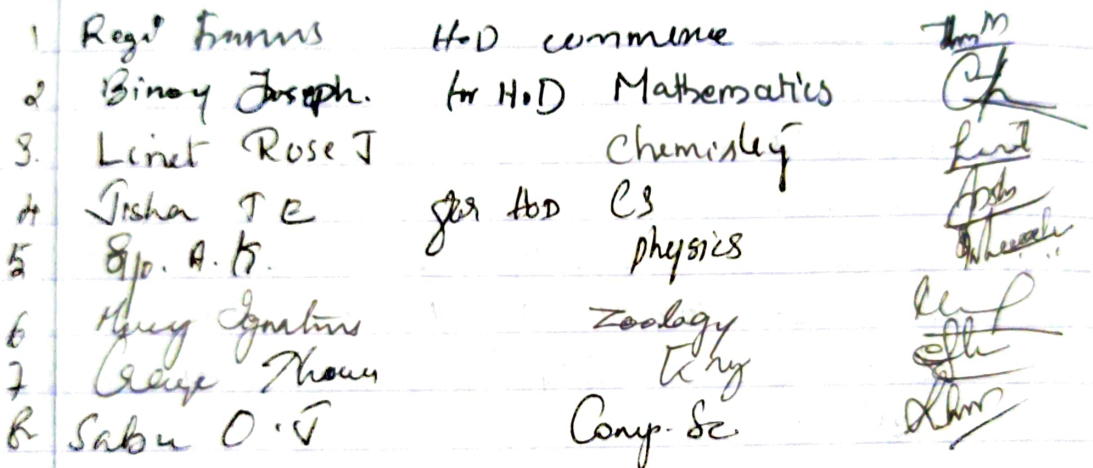 1 Regi HoD commerce
2 Binoy Joseph. for HoD Mathematics
3. Linet Rose J Chemistry
4 Jisha T E for HoD CS
5 A. K. physics
6 Mercy Ignatius Zoology
7 George Eng
8 Sabu O.J Comp. Sc.